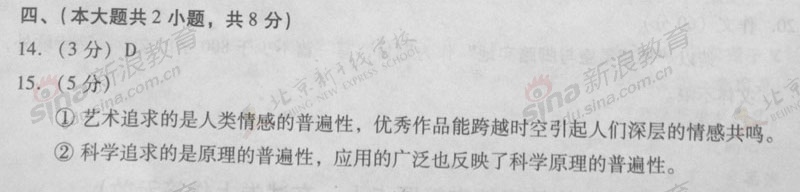 四、（本大题共 2 小题，共 8 分）
14.（3 分）D
15.（5 分）
① 艺术追求的是人类情感的普遍性，优秀作品能跨越时空引起人们深层的情感共鸣。
② 科学追求的是原理的普遍性，应用的广泛也反映了科学原理的普遍性。
sina 新浪教育
edu.sina.com.cn
北京新干线学校
sina 新浪教育
edu.sina.com.cn